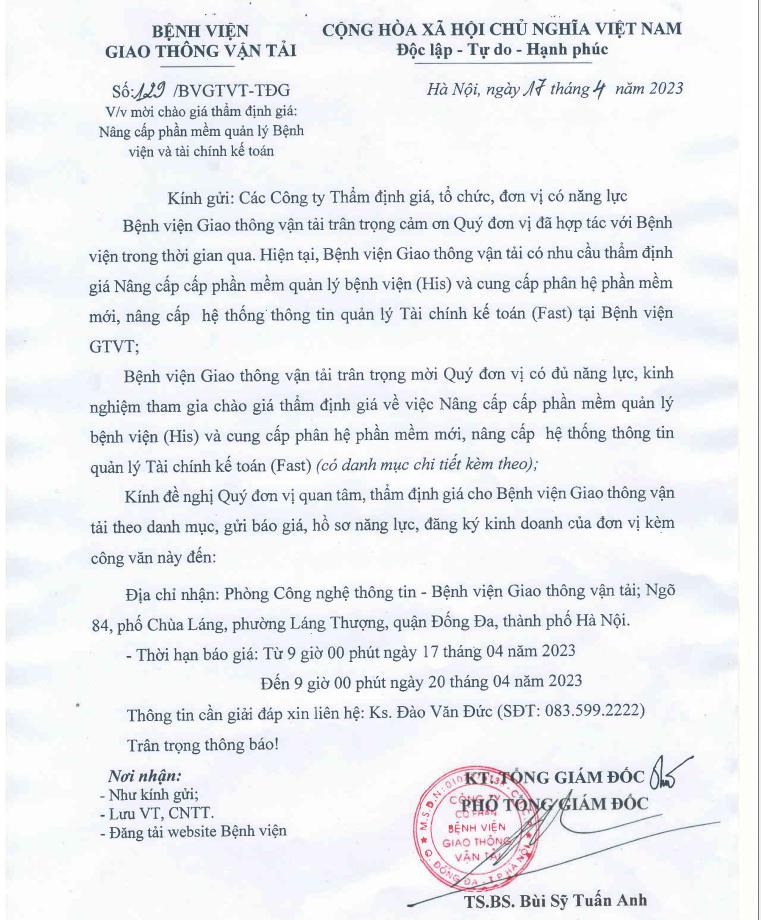 BỆNH VIỆN
GIAO THÔNG VẬN TẢI
CỘNG HÒA XÃ HỘI CHỦ NGHĨA VIỆT NAM
Độc lập - Tự do - Hạnh phúc
Số:129 /BVGTVT-TĐG
V/v mời chào giá thẩm định giá:
Nâng cấp phần mềm quản lý Bệnh
viện và tài chính kế toán
Hà Nội, ngày 17 tháng 4 năm 2023
Kính gửi: Các Công ty Thẩm định giá, tổ chức, đơn vị có năng lực
Bệnh viện Giao thông vận tải trân trọng cảm ơn Quý đơn vị đã hợp tác với Bệnh
viện trong thời gian qua. Hiện tại, Bệnh viện Giao thông vận tải có nhu cầu thẩm định
giá Nâng cấp cấp phần mềm quản lý bệnh viện (His) và cung cấp phân hệ phần mềm
mới, nâng cấp hệ thống thông tin quản lý Tài chính kế toán (Fast) tại Bệnh viện
GTVT;
Bệnh viện Giao thông vận tải trân trọng mời Quý đơn vị có đủ năng lực, kinh
nghiệm tham gia chào giá thẩm định giá về việc Nâng cấp cấp phần mềm quản lý
bệnh viện (His) và cung cấp phân hệ phần mềm mới, nâng cấp hệ thống thông tin
quản lý Tài chính kế toán (Fast) (có danh mục chi tiết kèm theo);
Kính đề nghị Quý đơn vị quan tâm, thẩm định giá cho Bệnh viện Giao thông vận
tải theo danh mục, gửi báo giá, hồ sơ năng lực, đăng ký kinh doanh của đơn vị kèm
công văn này đến:
Địa chỉ nhận: Phòng Công nghệ thông tin - Bệnh viện Giao thông vận tải; Ngõ
84, phố Chùa Láng, phường Láng Thượng, quận Đống Đa, thành phố Hà Nội.
- Thời hạn báo giá: Từ 9 giờ 00 phút ngày 17 tháng 04 năm 2023
Đến 9 giờ 00 phút ngày 20 tháng 04 năm 2023
Thông tin cần giải đáp xin liên hệ: Ks. Đào Văn Đức (SĐT: 083.599.2222)
Trân trọng thông báo!
Nơi nhận:
- Như kính gửi;
- Lưu VT, CNTT.
- Đăng tải website Bệnh viện
KT. TỔNG GIÁM ĐỐC
PHÓ TỔNG GIÁM ĐỐC
CÔNG TY
CỔ PHẦN
BỆNH VIỆN
GIAO THÔNG
VẬN TẢI
Q. ĐỐNG ĐA - T.P HÀ NỘI
TS.BS. Bùi Sỹ Tuấn Anh